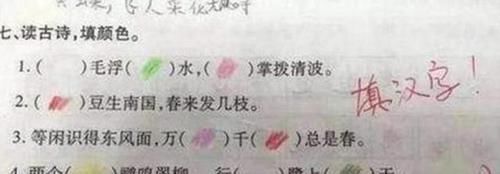 七、读古诗,填颜色。
1.( )毛浮( )水,( )掌拨清波。
2.( )豆生南国,春来发几枝。
填汉字!
3.等闲识得东风面,万( )千( )总是春。
4.两个( )鹂鸣翠柳,一行( )鹭上( )天